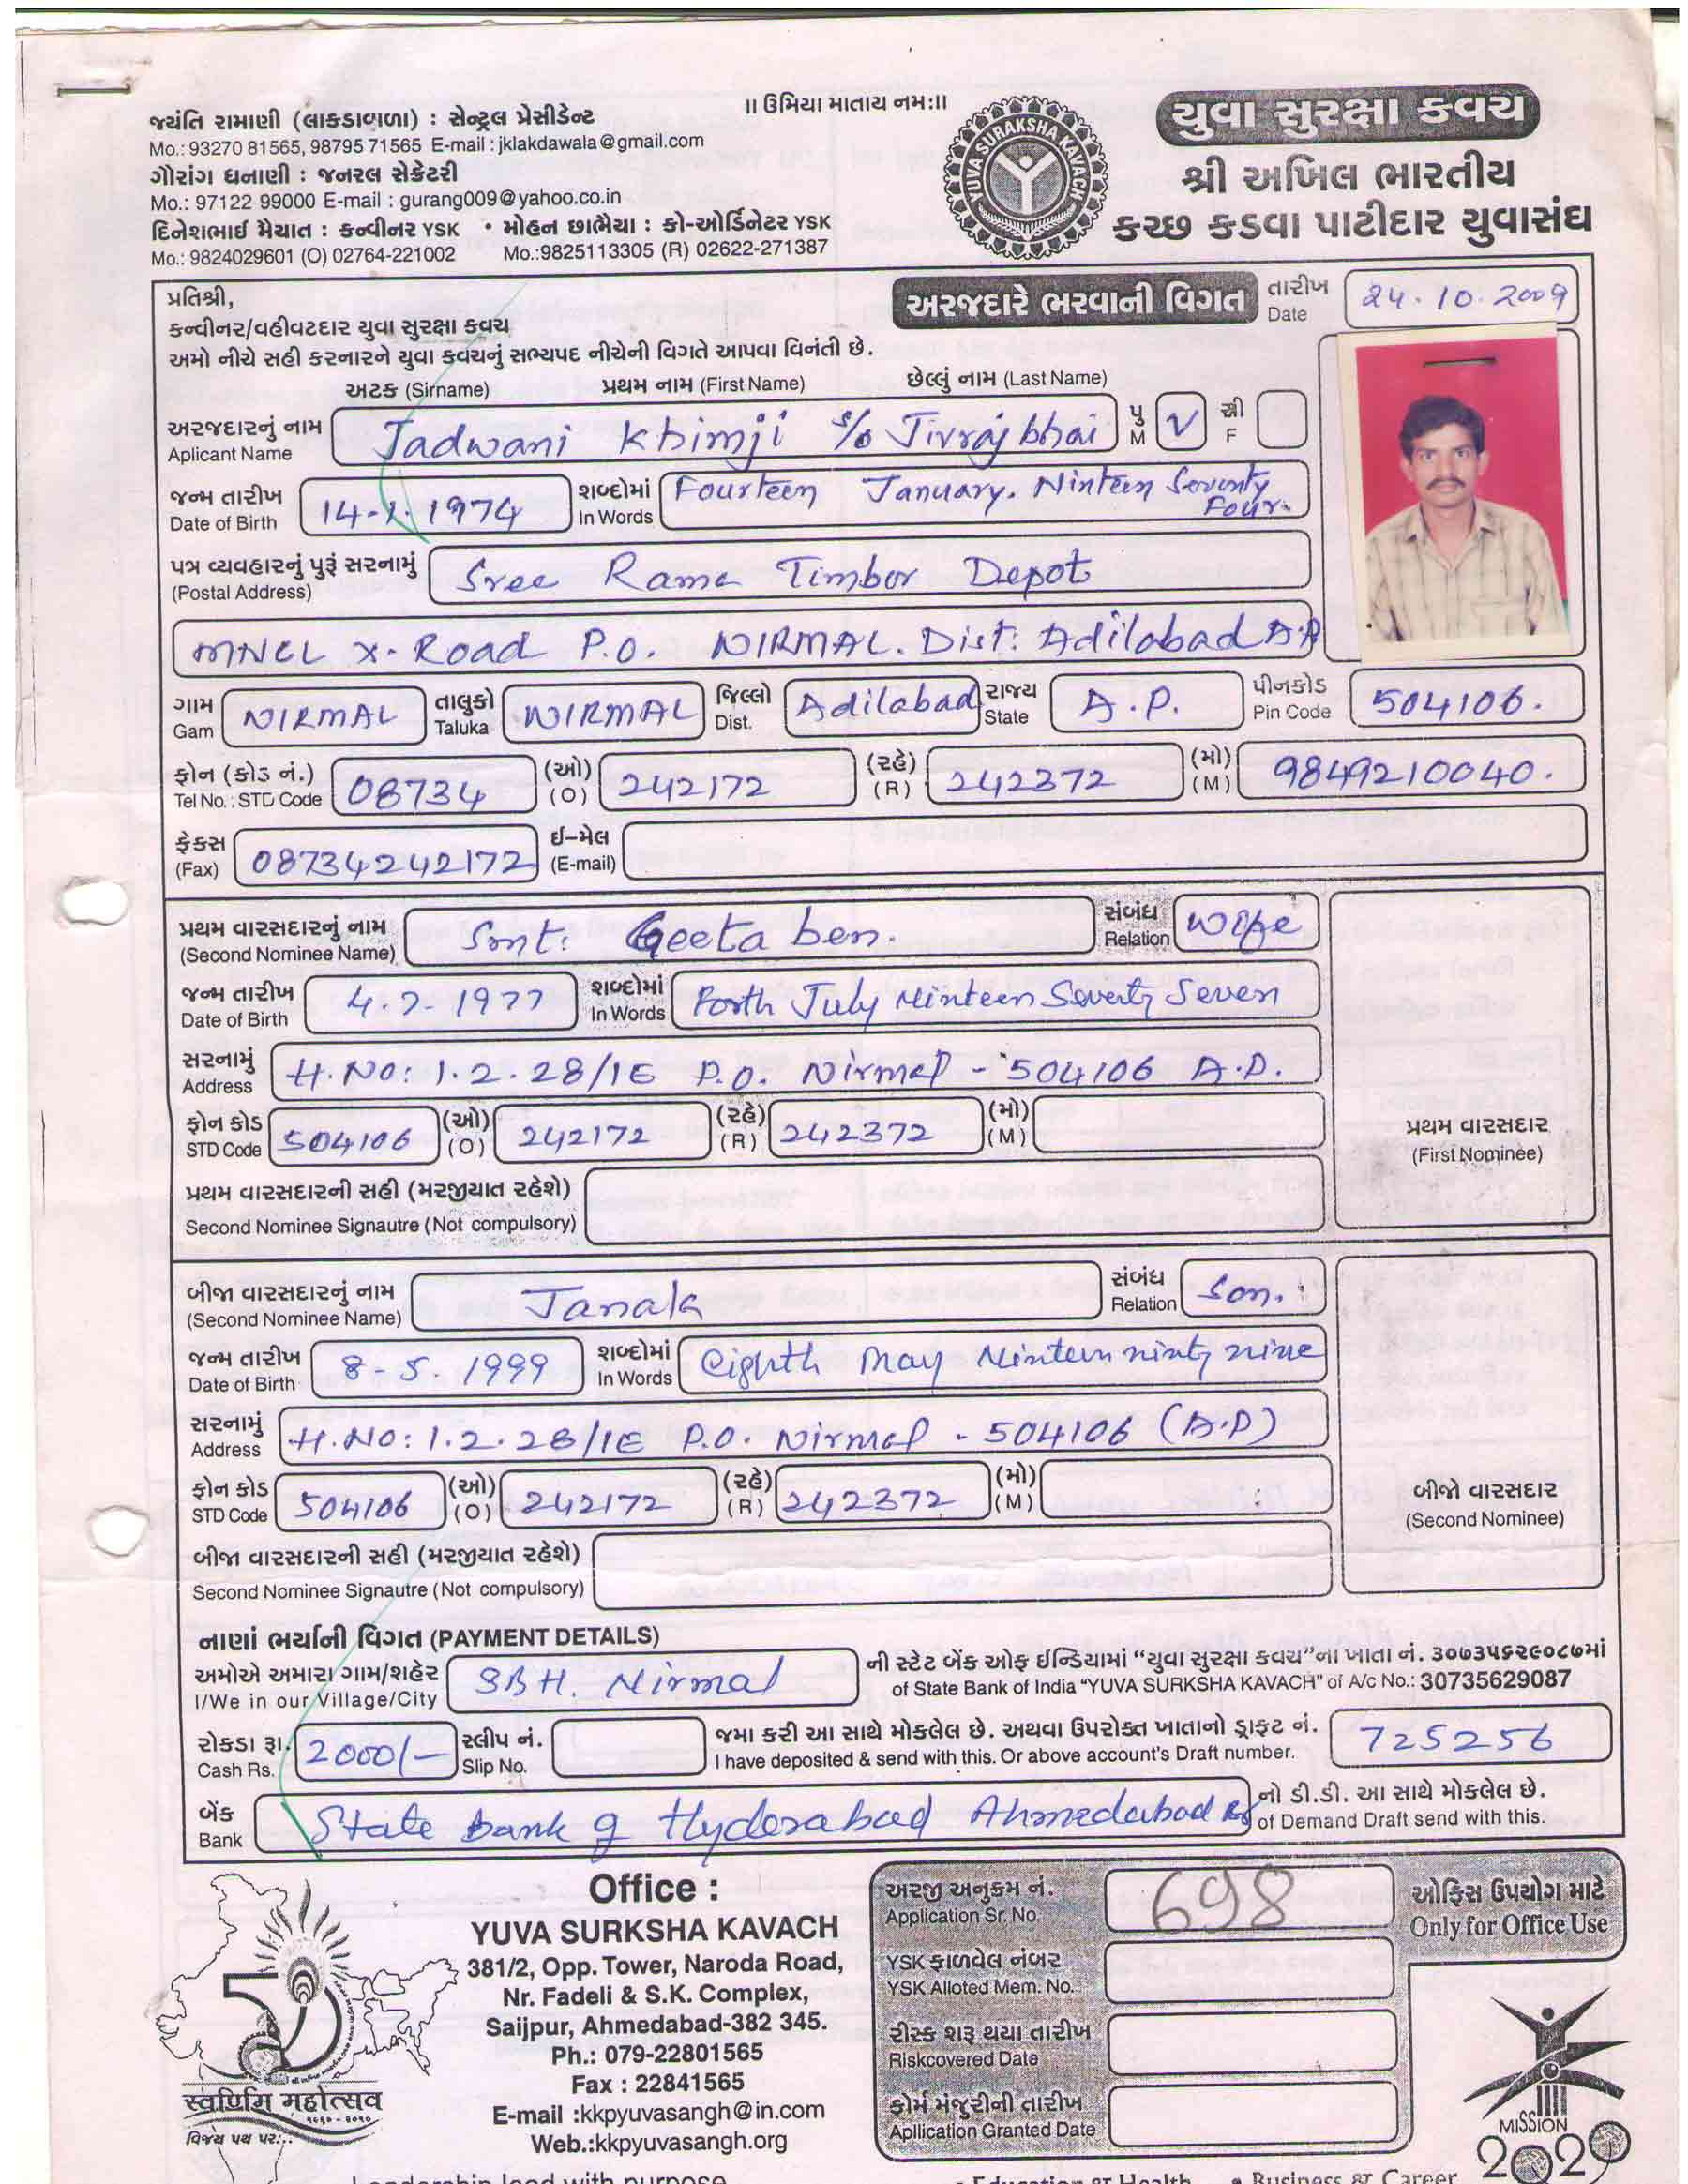 ॥ ઉમિયા માતાય નમ:॥
જયંતિ રામાણી (લાકડાવાળા) : સેન્ટ્રલ પ્રેસીડેન્ટ
Mo.: 93270 81565, 98795 71565 E-mail : jklakdawala@gmail.com
ગૌરાંગ ધનાણી : જનરલ સેક્રેટરી
Mo.: 97122 99000 E-mail : gurang009@yahoo.co.in
દિનેશભાઈ મૈયાત : કન્વીનર YSK • મોહન છાભૈયા : કો-ઓર્ડિનેટર YSK
Mo.: 9824029601 (O) 02764-221002 Mo.:9825113305 (R) 02622-271387
YUVA SURAKSHA KAVACH
યુવા સુરક્ષા કવચ
શ્રી અખિલ ભારતીય
કચ્છ કડવા પાટીદાર યુવાસંઘ
પ્રતિશ્રી,
કન્વીનર/વહીવટદાર યુવા સુરક્ષા કવચ
અમો નીચે સહી કરનારને યુવા કવચનું સભ્યપદ નીચેની વિગતે આપવા વિનંતી છે.
અરજદારે ભરવાની વિગત
તારીખ Date 24.10.2009
અટક (Sirname) પ્રથમ નામ (First Name) છેલ્લું નામ (Last Name)
અરજદારનું નામ Aplicant Name Jadwani Khimji S/o Jivrajbhai પુ M V સ્રી F
જન્મ તારીખ Date of Birth 14-1-1974 શબ્દોમાં In Words Fourteen January. Ninteen Seventy Four.
પત્ર વ્યવહારનું પુરૂં સરનામું (Postal Address) Sree Rama Timbor Depot
MNCL X-Road P.O. NIRMAL. Dist: Adilabad A.P
ગામ Gam NIRMAL તાલુકો Taluka NIRMAL જિલ્લો Dist. Adilabad રાજ્ય State A.P. પીનકોડ Pin Code 504106.
ફોન (કોડ નં.) Tel No.: STD Code 08734 (ઓ) (O) 242172 (રહે) (R) 242372 (મો) (M) 9849210040.
ફેકસ (Fax) 08734242172 ઈ-મેલ (E-mail)
પ્રથમ વારસદારનું નામ (Second Nominee Name) Smt: Geeta ben. સંબંધ Relation Wife
જન્મ તારીખ Date of Birth 4.7.1977 શબ્દોમાં In Words Forth July Ninteen Seventy Seven
સરનામું Address H.NO: 1.2.28/1E P.O. Nirmal - 504106 A.P.
ફોન કોડ STD Code 504106 (ઓ) (O) 242172 (રહે) (R) 242372 (મો) (M)
પ્રથમ વારસદાર
(First Nominee)
પ્રથમ વારસદારની સહી (મરજીયાત રહેશે)
Second Nominee Signautre (Not compulsory)
બીજા વારસદારનું નામ (Second Nominee Name) Janak સંબંધ Relation Son.
જન્મ તારીખ Date of Birth 8-5-1999 શબ્દોમાં In Words Eighth May Ninteen ninty nine
સરનામું Address H.NO: 1.2.28/1E P.O. Nirmal - 504106 (A.P)
ફોન કોડ STD Code 504106 (ઓ) (O) 242172 (રહે) (R) 242372 (મો) (M)
બીજો વારસદાર
(Second Nominee)
બીજા વારસદારની સહી (મરજીયાત રહેશે)
Second Nominee Signautre (Not compulsory)
નાણાં ભર્યાની વિગત (PAYMENT DETAILS)
અમોએ અમારા ગામ/શહેર SBH. Nirmal ની સ્ટેટ બેંક ઓફ ઈન્ડિયામાં “યુવા સુરક્ષા કવચ”ના ખાતા નં. ૩૦૭૩૫૬૨૯૦૮૭માં
I/We in our Village/City of State Bank of India “YUVA SURKSHA KAVACH” of A/c No.: 30735629087
રોકડા રૂા. Cash Rs. 2000/- સ્લીપ નં. Slip No. જમા કરી આ સાથે મોકલેલ છે. અથવા ઉપરોક્ત ખાતાનો ડ્રાફ્ટ નં. 725256
I have deposited & send with this. Or above account's Draft number.
બેંક Bank State Bank of Hyderabad Ahmedabad નો ડી.ડી. આ સાથે મોકલેલ છે.
of Demand Draft send with this.
સ્વર્ણિમ મહોત્સવ
વિજય પથ પર...
Office :
YUVA SURKSHA KAVACH
381/2, Opp. Tower, Naroda Road,
Nr. Fadeli & S.K. Complex,
Saijpur, Ahmedabad-382 345.
Ph.: 079-22801565
Fax : 22841565
E-mail :kkpyuvasangh@in.com
Web.:kkpyuvasangh.org
અરજી અનુક્રમ નં. Application Sr. No. 698
ઓફિસ ઉપયોગ માટે
Only for Office Use
YSK ફાળવેલ નંબર
YSK Alloted Mem. No.
રીસ્ક શરૂ થયા તારીખ
Riskcovered Date
ફોર્મ મંજુરીની તારીખ
Apllication Granted Date
MISSION
2020
Leadership lead with purpose
• Education & Health • Business & Career